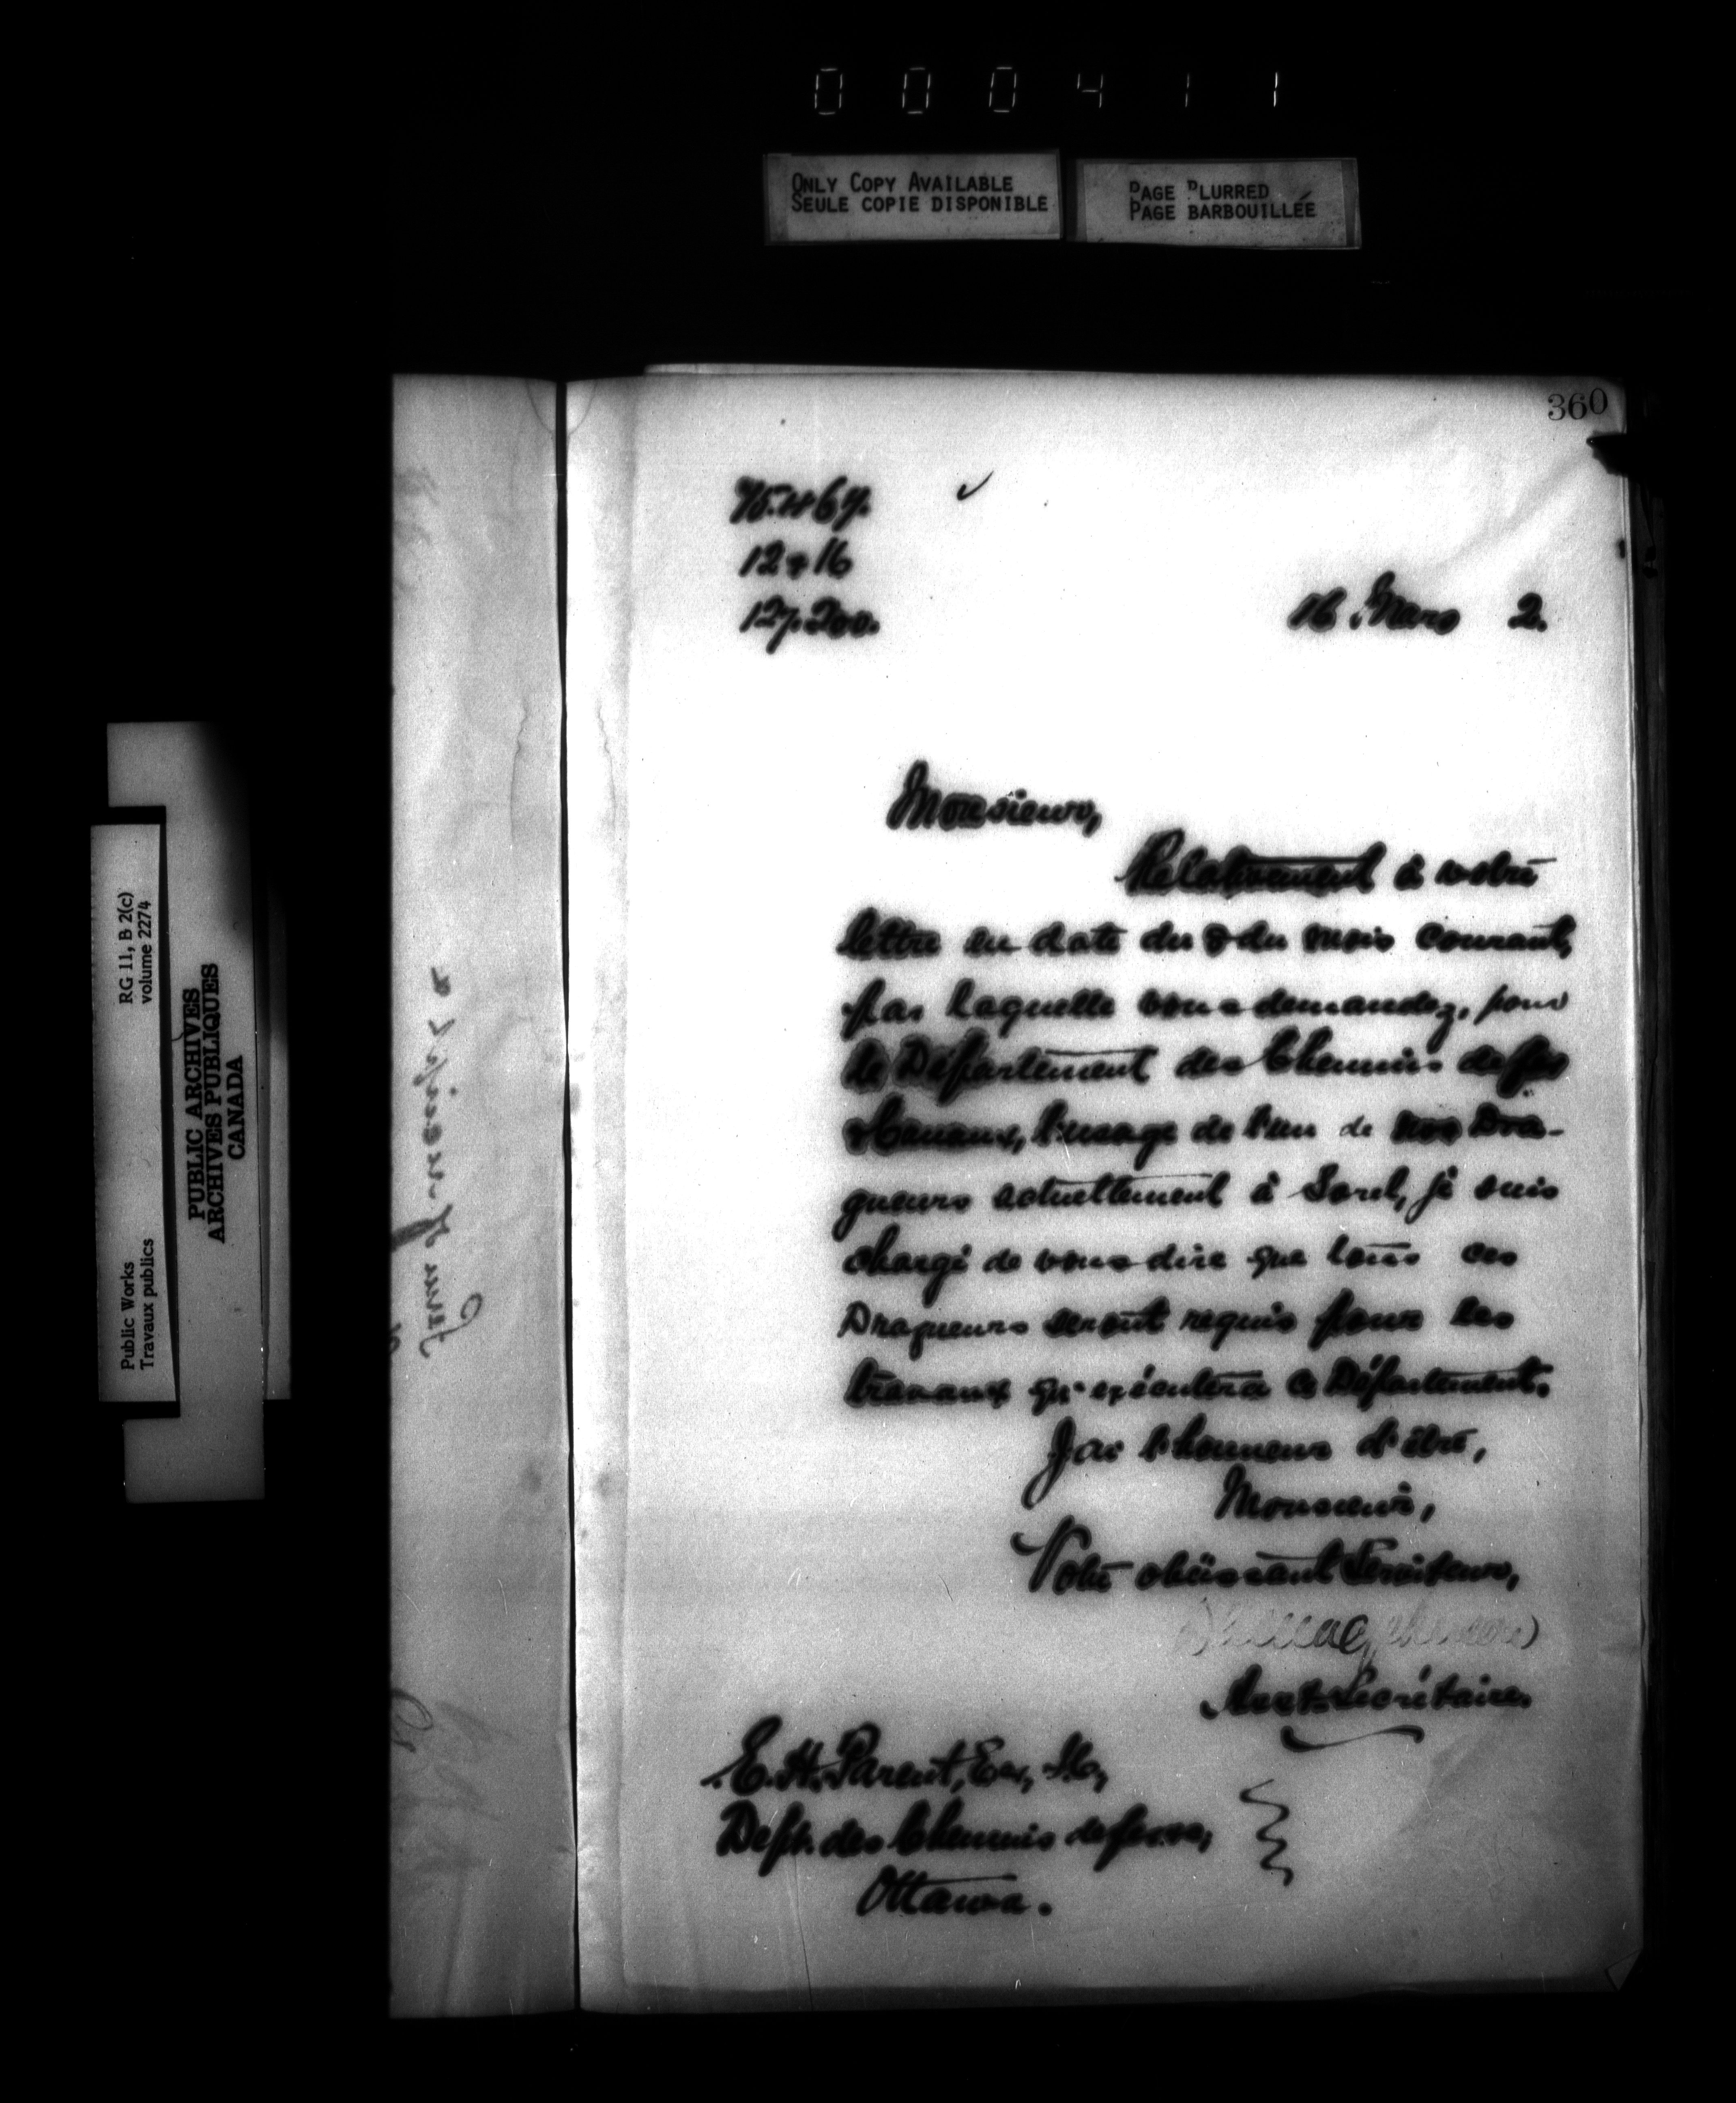 000411
ONLY COPY AVAILABLE
SEULE COPIE DISPONIBLE
PAGE BLURRED
PAGE BARBOUILLÉE
360
75.467.
12 & 16
127.200.
16 Mars 2.
Monsieur,
Relativement à votre
lettre en date du 8 du mois courant,
par laquelle vous demandez, pour
le Département des Chemins de fer
& Canaux, l'usage de l'un de nos Dra-
gueurs actuellement à Sorel, je suis
chargé de vous dire que tous ces
Dragueurs seront requis pour les
travaux qu'exécutera ce Département.
J'ai l'honneur d'être,
Monsieur,
Votre obéissant Serviteur,
Asst. Secrétaire.
E. H. Parent, Ecr,
Dept. des Chemins de fer &c,
Ottawa.
RG 11, B 2(c)
volume 2274
Public Works
Travaux publics
PUBLIC ARCHIVES
ARCHIVES PUBLIQUES
CANADA